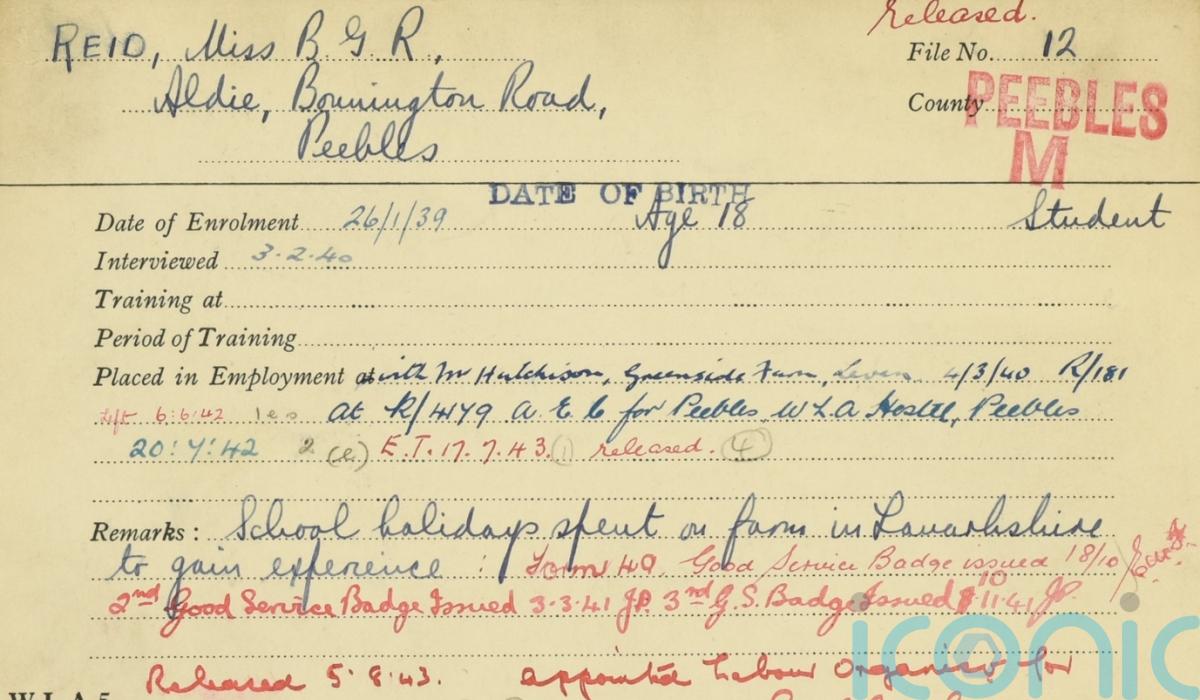 released.
REID, Miss B G R,
File No. 12
Aldie, Bonnington Road,
County PEEBLES
Peebles
M
DATE OF BIRTH
Date of Enrolment 26/1/39 Age 18 Student
Interviewed 3.2.40
Training at
Period of Training
Placed in Employment at with Mr Hutchison, Greenside Farm, Leven 4/3/40 R/181
Left 6:6:42 at R/4179 A. E. C for Peebles. W L A Hostel, Peebles
20:7:42 2 (e) E.T. 17.7.43. (1) released. (4)
Remarks: School holidays spent on farm in Lanarkshire
to gain experience : Form 49. Good Service Badge issued 18/10/
2nd Good Service Badge Issued 3.3.41 JP. 3rd G.S. Badge Issued 11.41 JP.
Released 5.8.43. appointed Labour Organiser for
W.L.A 5.
iconic